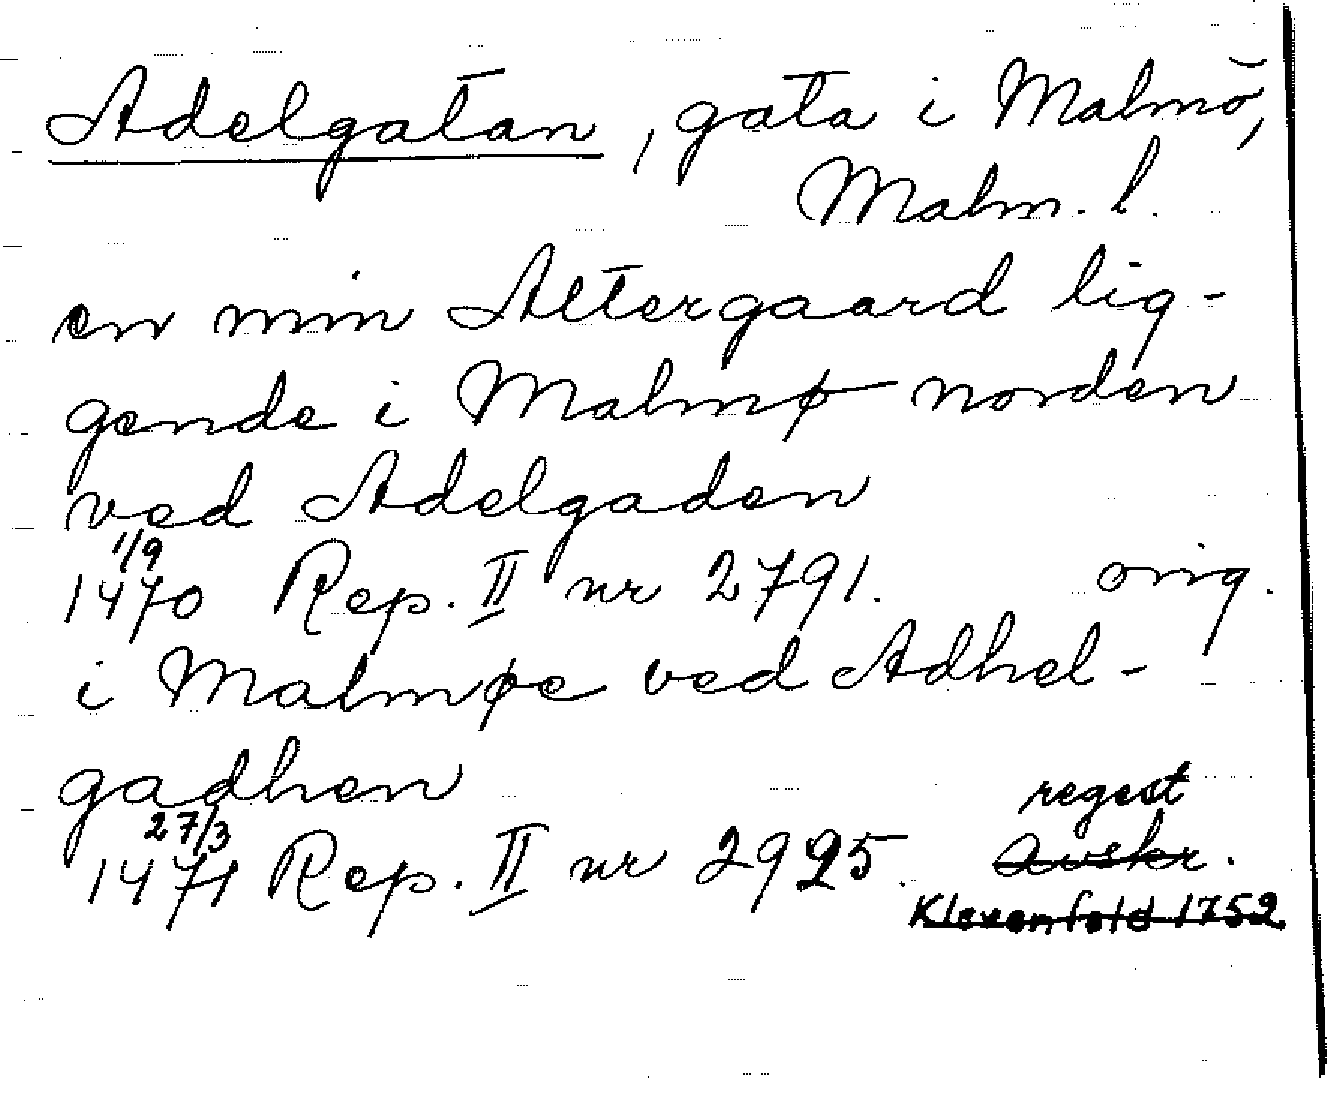 Adelgatan, gata i Malmö,
Malm. l.
en min Altergaard lig-
gende i Malmø norden
ved Adelgaden
1/9
1470 Rep. II nr 2791. orig.
i Malmøe ved Adhel-
gadhen
27/3 regest
1471 Rep. II nr 2925. avskr.
Klevenfeld 1752